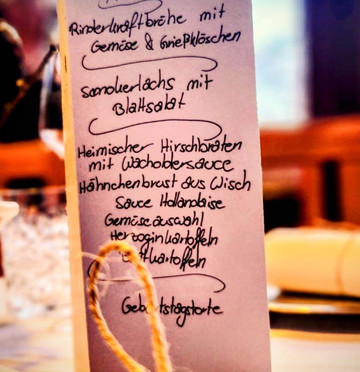 Rinderkraftbrühe mit
Gemüse & Grießklöschen
Sandkerlachs mit
Blattsalat
Heimischer Hirschbraten
mit Wacholdersauce
Hähnchenbrust aus Wisch
Sauce Hollandaise
Gemüseauswahl
Herzoginkartoffeln
Geburtstagstorte